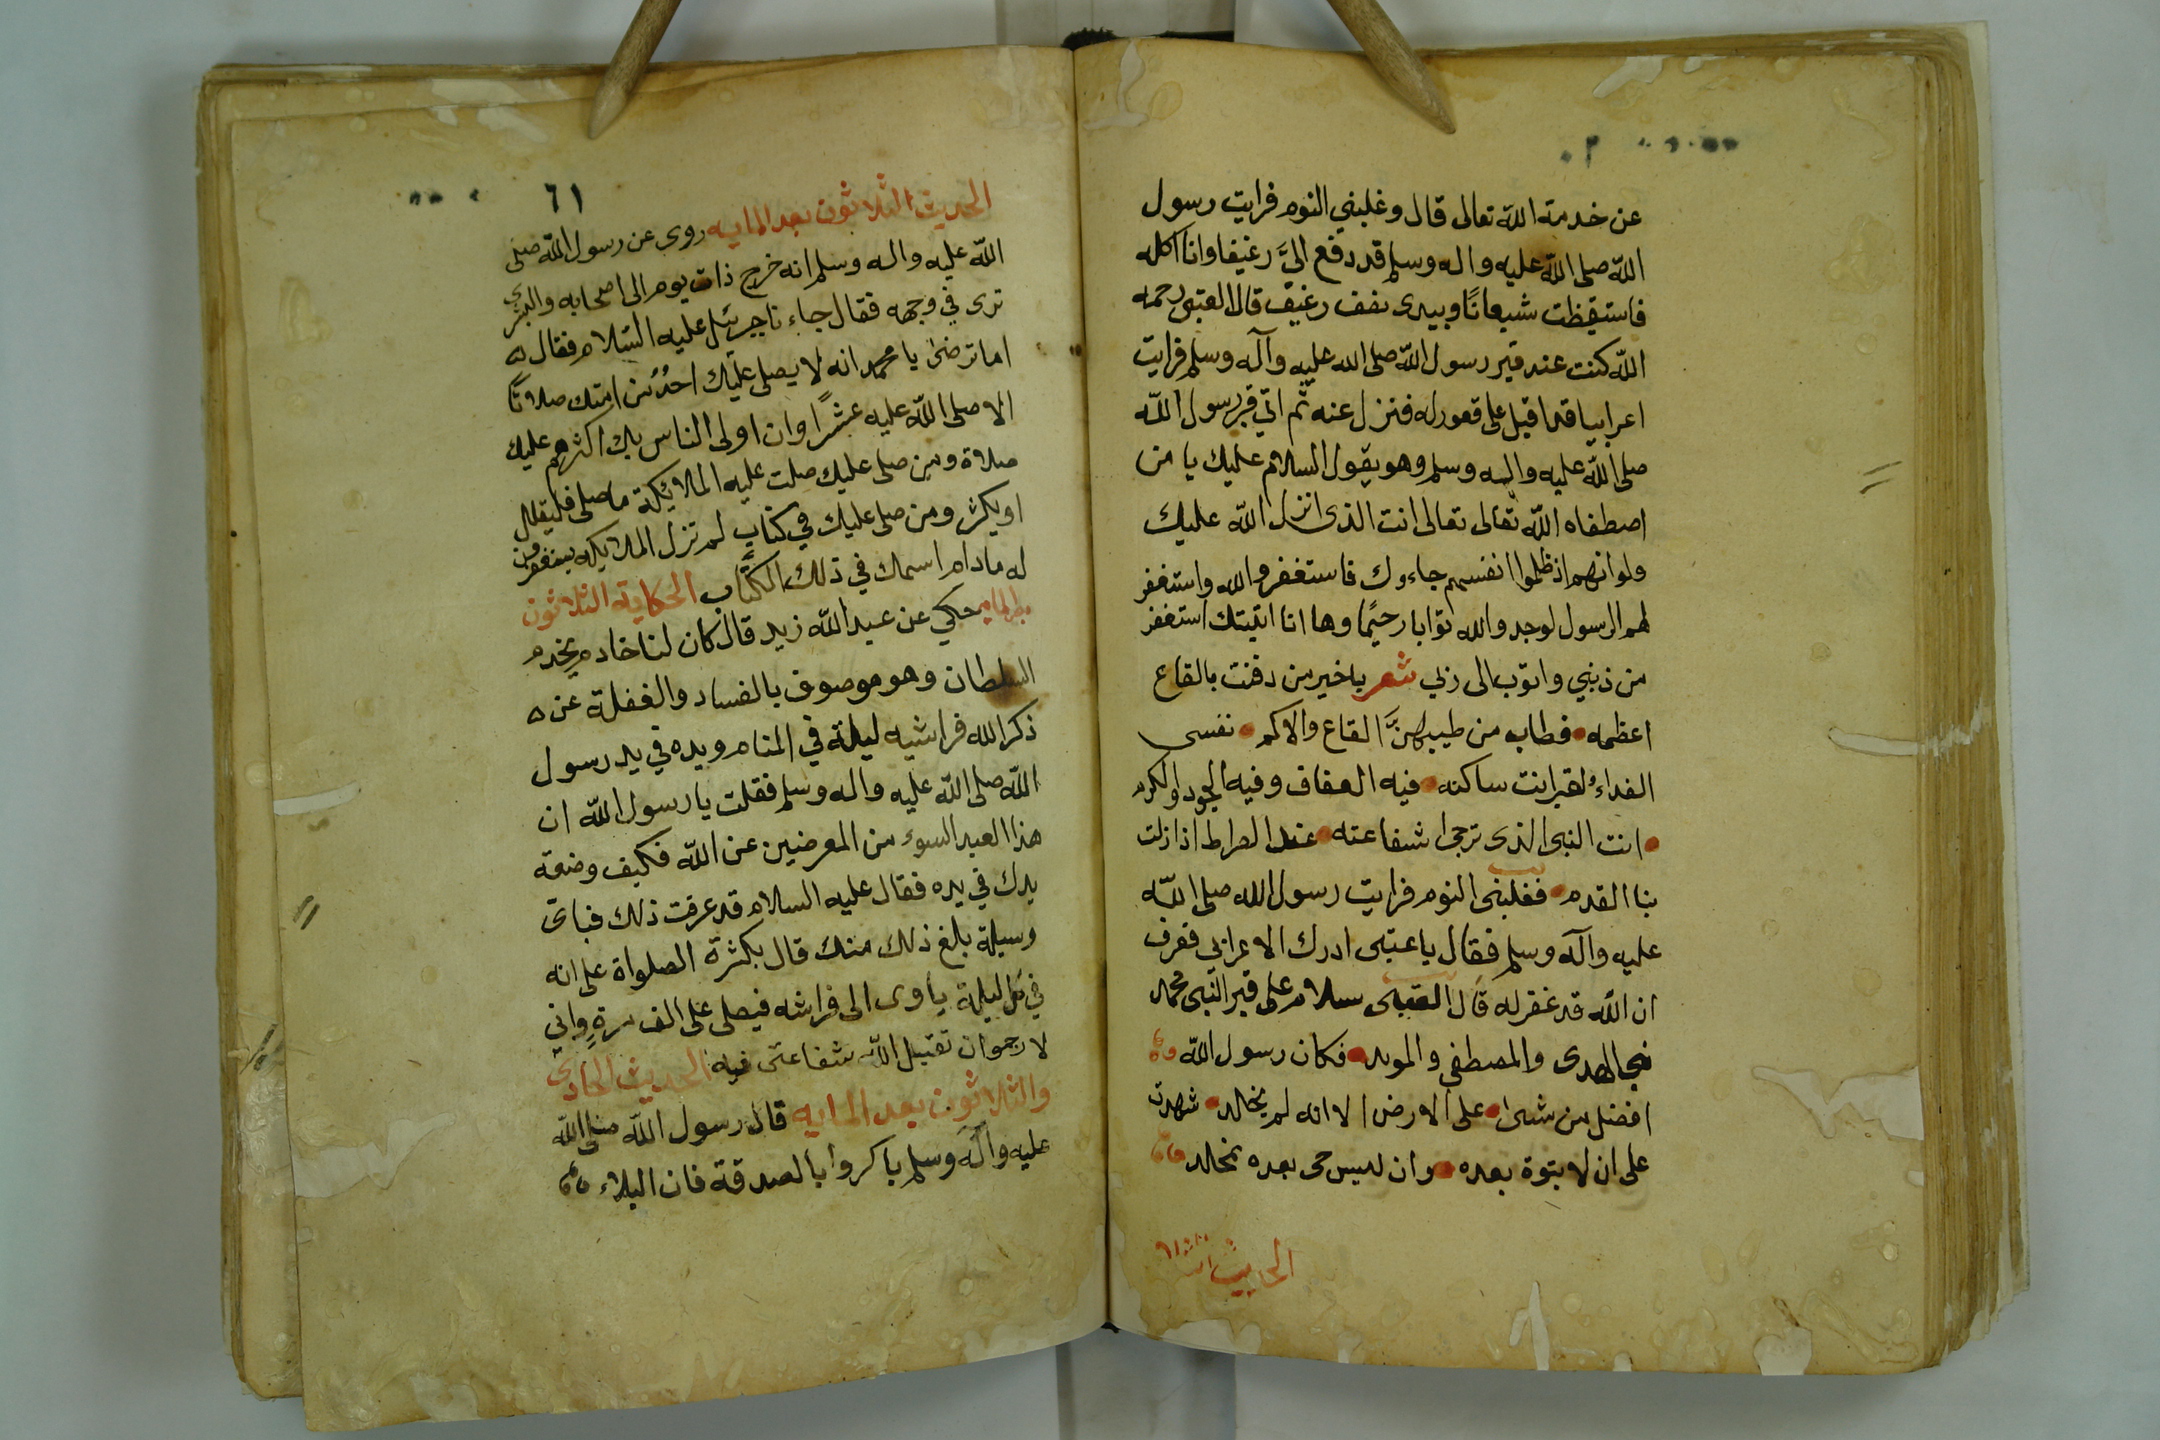 عن خدمة الله تعالى قال وغلبني النوم فرايت رسول
الله صلى الله عليه واله وسلم قد دفع اليَّ رغيفا وانا اكله
فاستيقظت شبعانًا وبيدى نصف رغيف قال العتبى رحمه
الله كنت عند قبر رسول الله صلى الله عليه وآله وسلم فرايت
اعرابيا قد اقبل على قعود له فنزل عنه ثم اتي قبر رسول الله
صلى الله عليه واله وسلم وهو يقول السلام عليك يا من
اصطفاه الله تعالى تعالى انت الذى انزل الله عليك
ولو انهم اذ ظلموا انفسهم جاءوك فاستغفروا الله واستغفر
لهم الرسول لوجدوالله توابا رحيمًا وها انا اتيتك استغفر
من ذنبي واتوب الى ربي شعر يا خير من دفنت بالقاع
اعظمه فطاب من طيبهنَّ القاع والاكم نفسى
الفداءُ لقبر انت ساكنه فيه العفاف وفيه الجود والكرم
انت النبى الذى ترجى شفاعته عند الصراط اذا زلت
بنا القدم فغلبنى النوم فرايت رسول الله صلى الله
عليه وآله وسلم فقال يا عتبى ادرك الاعرابي فعرف
ان الله قد غفر له قال العتبى سلام على قبر النبى محمد
نبى الهدى والمصطفى والمويد فكان رسول الله
افضل من مشى على الارض الا انه لم يخلد شهدت
على ان لا نبوة بعده وان ليس حى بعده بمخلد
الحديث
٦١
الحديث الثلاثون بعد المايه روى عن رسول الله صلى
الله عليه واله وسلم انه خرج ذات يوم الى اصحابه والبشرى
ترى في وجهه فقال جاءنا جبرئيل عليه السلام فقال
اما ترضى يا محمد انه لا يصلى عليك احدٌ من امتك صلاتًا
الا صلى الله عليه عشرًا وان اولى الناس بك اكثرهم عليك
صلاة ومن صلى عليك صلت عليه الملائيكة ما صلى فليقلل
او يكثر ومن صلى عليك في كتاب لم تزل الملائيكه يستغفرون
له مادام اسمك في ذلك الكتاب الحكاية الثلاثون
بعد المايه حكي عن عبد الله زيد قال كان لنا خادم يخدم
السلطان وهو موصوف بالفساد والغفلة عن
ذكر الله فرايته ليلة في المنام ويده في يد رسول
الله صلى الله عليه واله وسلم فقلت يا رسول الله ان
هذا العبد السوء من المعرضين عن الله فكيف وضعة
يدك في يده فقال عليه السلام قد عرفت ذلك فباى
وسيلة بلغ ذلك منك قال بكثرة الصلواة على انه
في كل ليلة ياوى الى فراشه فيصلى على الف مرةٍ واني
لارجوان تقبل الله شفاعتى فيه الحديث الحادى
والثلاثون بعد المايه قال رسول الله صلى الله
عليه وآله وسلم باكروا بالصدقة فان البلاء